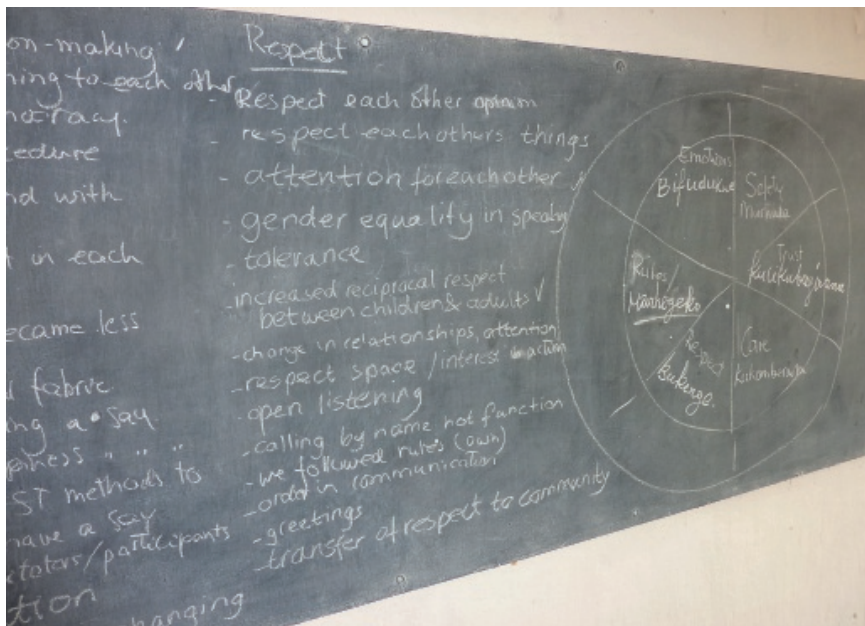 on-making
ning to each other
ocracy.
cedure
nd with
t in each
ecame less
fabric
ng a say
" " "
ST methods to
have a say
tators/participants
tion
hanging
Respect
- Respect each other opinion
- respect each others things
- attention foreachother ✓
- gender equality in speaking
- tolerance
- increased reciprocal respect
between children & adults ✓
- change in relationships, attention
- respect space / interest
- open listening
- calling by name not function
- we followed rules (own)
- order in communication
- greetings
- transfer of respect to community
Emotions
Safety
Trust
Rules/
Respect
Care